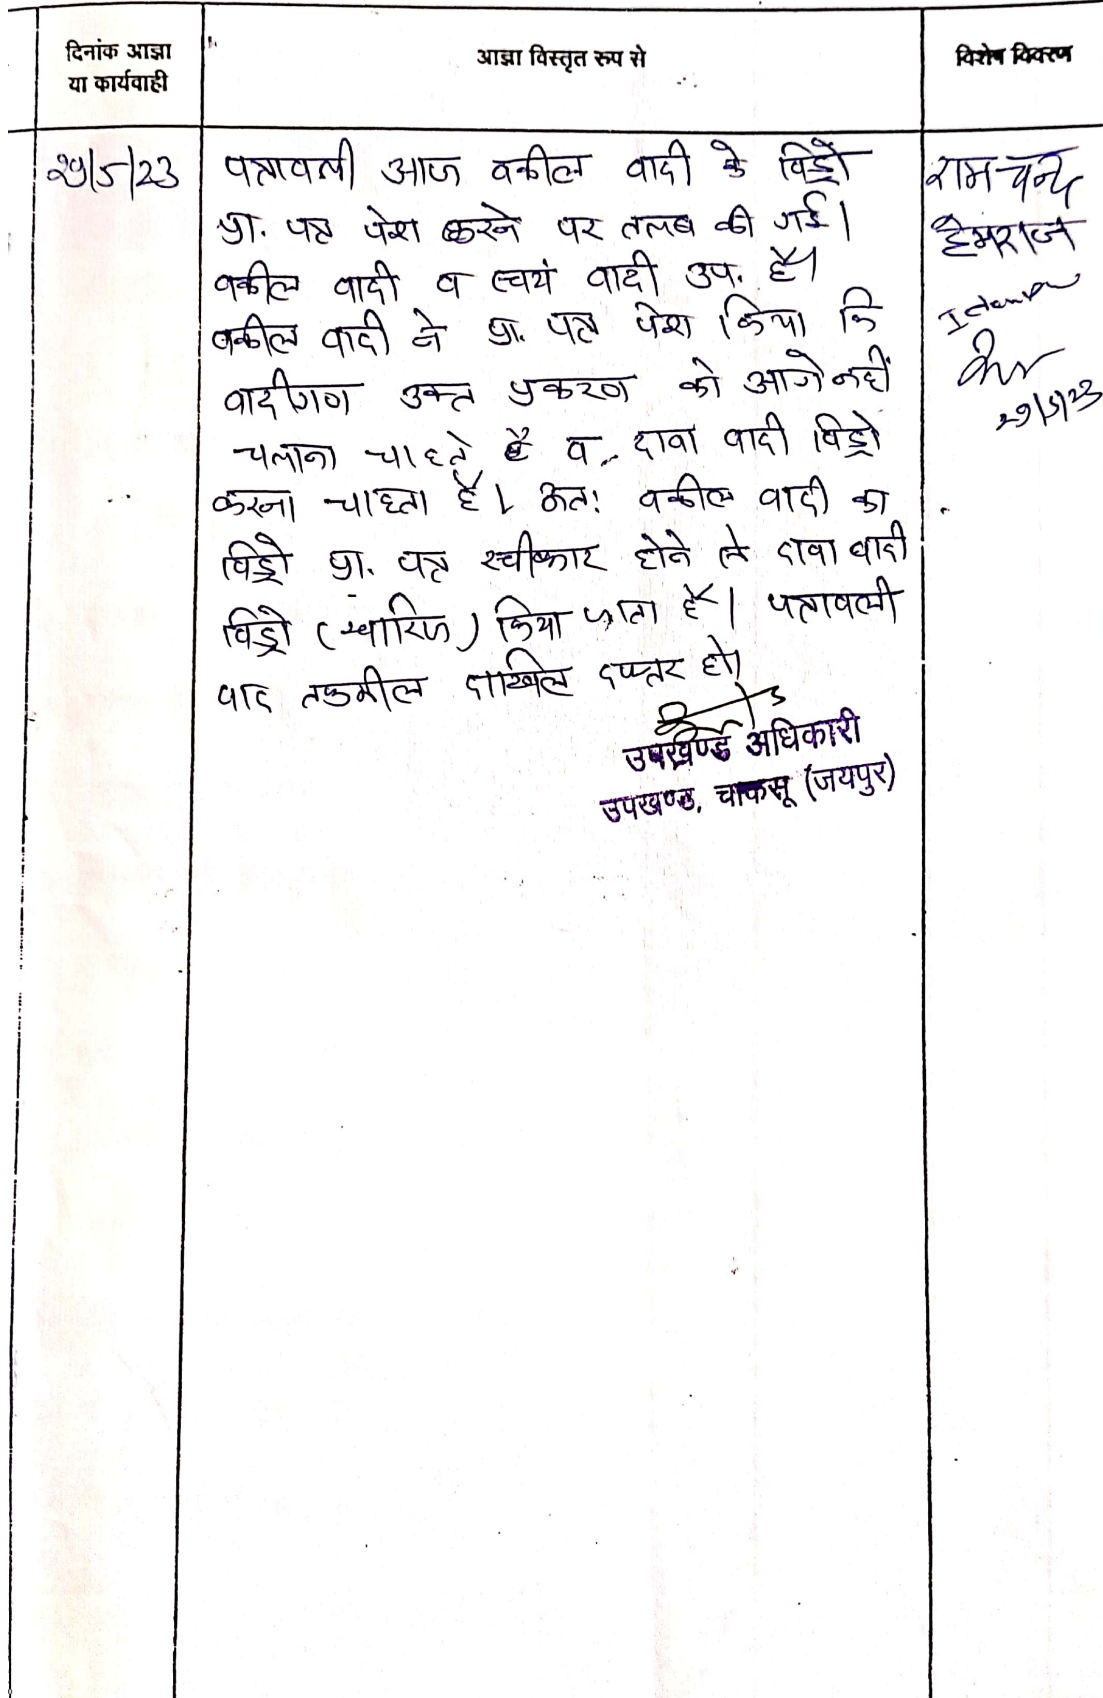 दिनांक आज्ञा
या कार्यवाही
आज्ञा विस्तृत रुप से
विशेष विवरण
29/5/23
पत्रावली आज वकील वादी के विड्रो
प्रा. पत्र पेश करने पर तलब की गई।
वकील वादी व स्वयं वादी उप. है।
वकील वादी ने प्रा. पत्र पेश किया कि
वादीगण उक्त प्रकरण को आगे नहीं
चलाना चाहते है व दावा वादी विड्रो
करना चाहता है। अत: वकील वादी का
विड्रो प्रा. पत्र स्वीकार होने से दावा वादी
विड्रो (खारिज) किया जाता है। पत्रावली
बाद तकमील दाखिल दफ्तर हो।
उपखण्ड अधिकारी
उपखण्ड, चाकसू (जयपुर)
रामचन्द्र
हेमराज
29/5/23